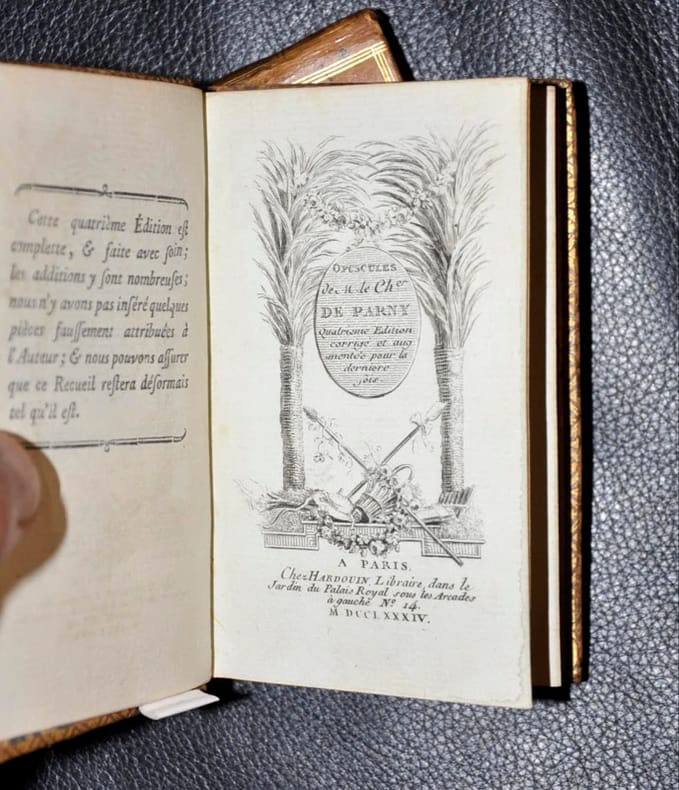 Cette quatrième Édition eſt
complette, & faite avec ſoin;
les additions y ſont nombreuſes;
nous n'y avons pas inſéré quelques
pièces fauſſement attribuées à
l'Auteur; & nous pouvons aſſurer
que ce Recueil reſtera déſormais
tel qu'il eſt.
OPUSCULES
de M. le Cher
DE PARNY
Quatrieme Edition
corrigé et aug
mentée pour la
derniere
fois.
A PARIS.
Chez HARDOUIN, Libraire, dans le
Jardin du Palais Royal sous les Arcades
à gauche No 14.
M DCCLXXXIV.